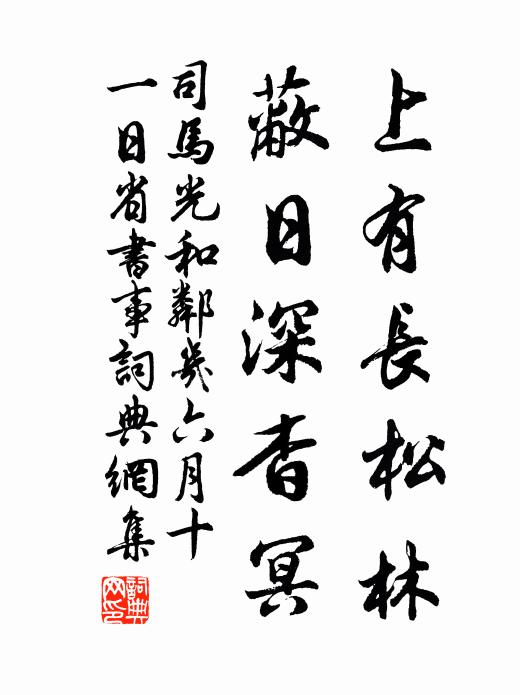 上有長松林
蔽日深杳冥
司馬光和鄰幾六月十
一日省書事詞典網集
詞典
網印